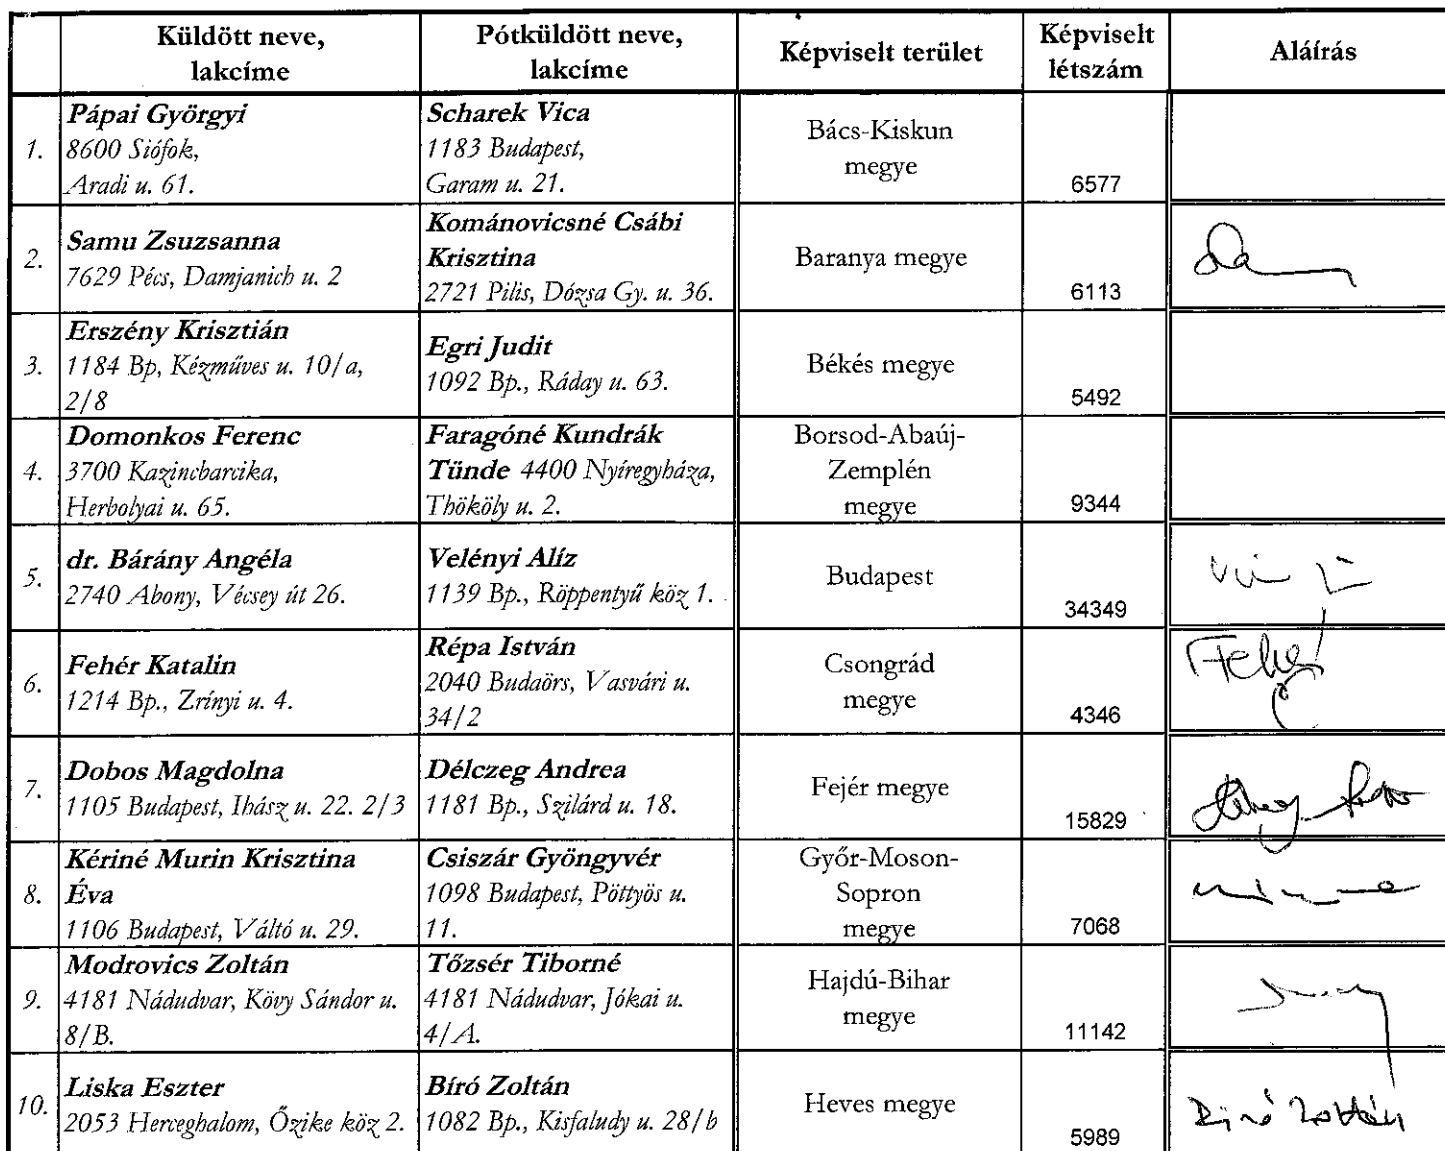 Küldött neve,
lakcíme
Pótküldött neve,
lakcíme
Képviselt terület
Képviselt
létszám
Aláírás
1.
Pápai Györgyi
8600 Siófok,
Aradi u. 61.
Scharek Vica
1183 Budapest,
Garam u. 21.
Bács-Kiskun
megye
6577
2.
Samu Zsuzsanna
7629 Pécs, Damjanich u. 2
Kománovicsné Csábi
Krisztina
2721 Pilis, Dózsa Gy. u. 36.
Baranya megye
6113
3.
Erszény Krisztián
1184 Bp, Kézműves u. 10/a,
2/8
Egri Judit
1092 Bp., Ráday u. 63.
Békés megye
5492
4.
Domonkos Ferenc
3700 Kazincbarcika,
Herbolyai u. 65.
Faragóné Kundrák
Tünde 4400 Nyíregyháza,
Thököly u. 2.
Borsod-Abaúj-
Zemplén
megye
9344
5.
dr. Bárány Angéla
2740 Abony, Vécsey út 26.
Velényi Alíz
1139 Bp., Röppentyű köz 1.
Budapest
34349
6.
Fehér Katalin
1214 Bp., Zrínyi u. 4.
Répa István
2040 Budaörs, Vasvári u.
34/2
Csongrád
megye
4346
7.
Dobos Magdolna
1105 Budapest, Ihász u. 22. 2/3
Délczeg Andrea
1181 Bp., Szilárd u. 18.
Fejér megye
15829
8.
Kériné Murin Krisztina
Éva
1106 Budapest, Váltó u. 29.
Csiszár Gyöngyvér
1098 Budapest, Pöttyös u.
11.
Győr-Moson-
Sopron
megye
7068
9.
Modrovics Zoltán
4181 Nádudvar, Kövy Sándor u.
8/B.
Tőzsér Tiborné
4181 Nádudvar, Jókai u.
4/A.
Hajdú-Bihar
megye
11142
10.
Liska Eszter
2053 Herceghalom, Őzike köz 2.
Bíró Zoltán
1082 Bp., Kisfaludy u. 28/b
Heves megye
5989
Bíró Zoltán